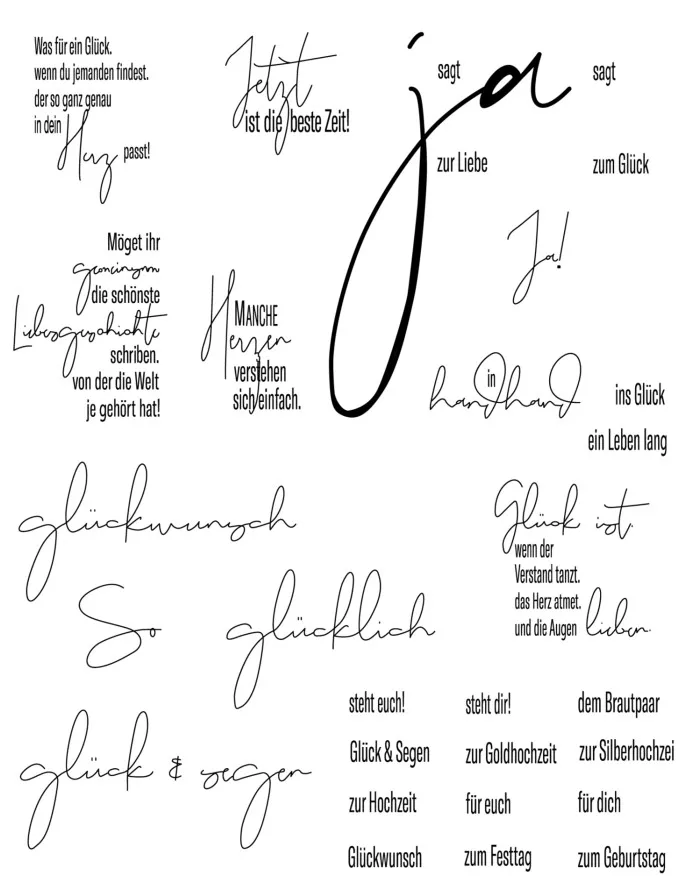 Was für ein Glück.
wenn du jemanden findest.
der so ganz genau
in dein Herz passt!
Jetzt
ist die beste Zeit!
ja
sagt
sagt
zur Liebe
zum Glück
Ja!
Möget ihr
gemeinsam
die schönste
Liebesgeschichte
schriben.
von der die Welt
je gehört hat!
MANCHE
Herzen
verstehen
sich einfach.
hand in hand
ins Glück
ein Leben lang
glückwunsch
Glück ist.
wenn der
Verstand tanzt.
das Herz atmet.
und die Augen lieben.
So glücklich
glück & segen
steht euch!
steht dir!
dem Brautpaar
Glück & Segen
zur Goldhochzeit
zur Silberhochzei
zur Hochzeit
für euch
für dich
Glückwunsch
zum Festtag
zum Geburtstag